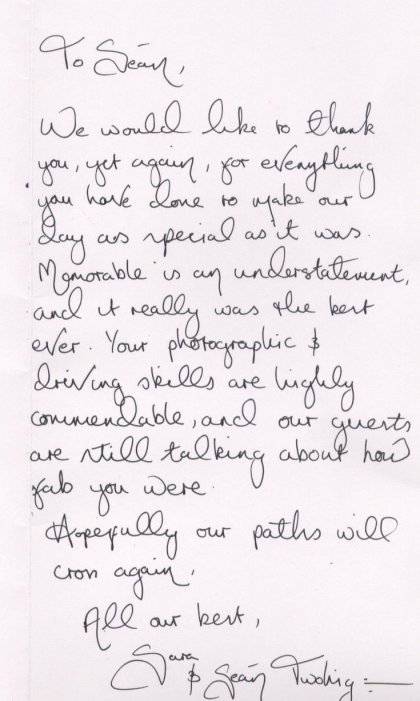 To Seán,
We would like to thank
you, yet again, for everything
you have done to make our
day as special as it was.
Memorable is an understatement,
and it really was the best
ever. Your photographic &
driving skills are highly
commendable, and our guests
are still talking about how
fab you were.
Hopefully our paths will
cross again.
All our best,
Sara
& Seán Twohig